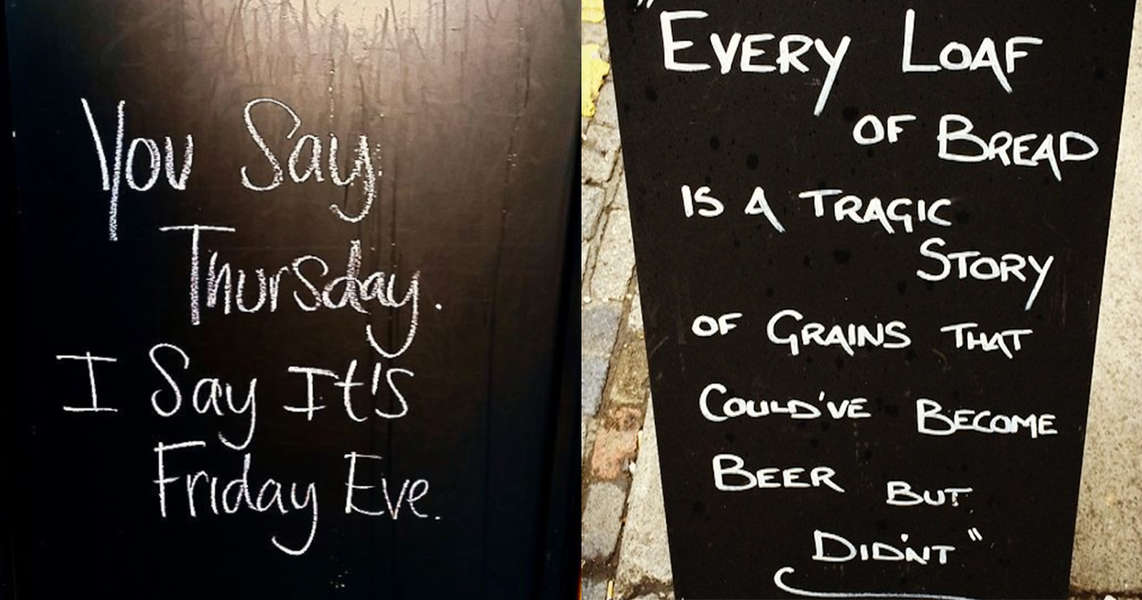 You Say
Thursday.
I Say It's
Friday Eve.
"EVERY LOAF
OF BREAD
IS A TRAGIC
STORY
OF GRAINS THAT
COULD'VE BECOME
BEER BUT
DIDN'T"